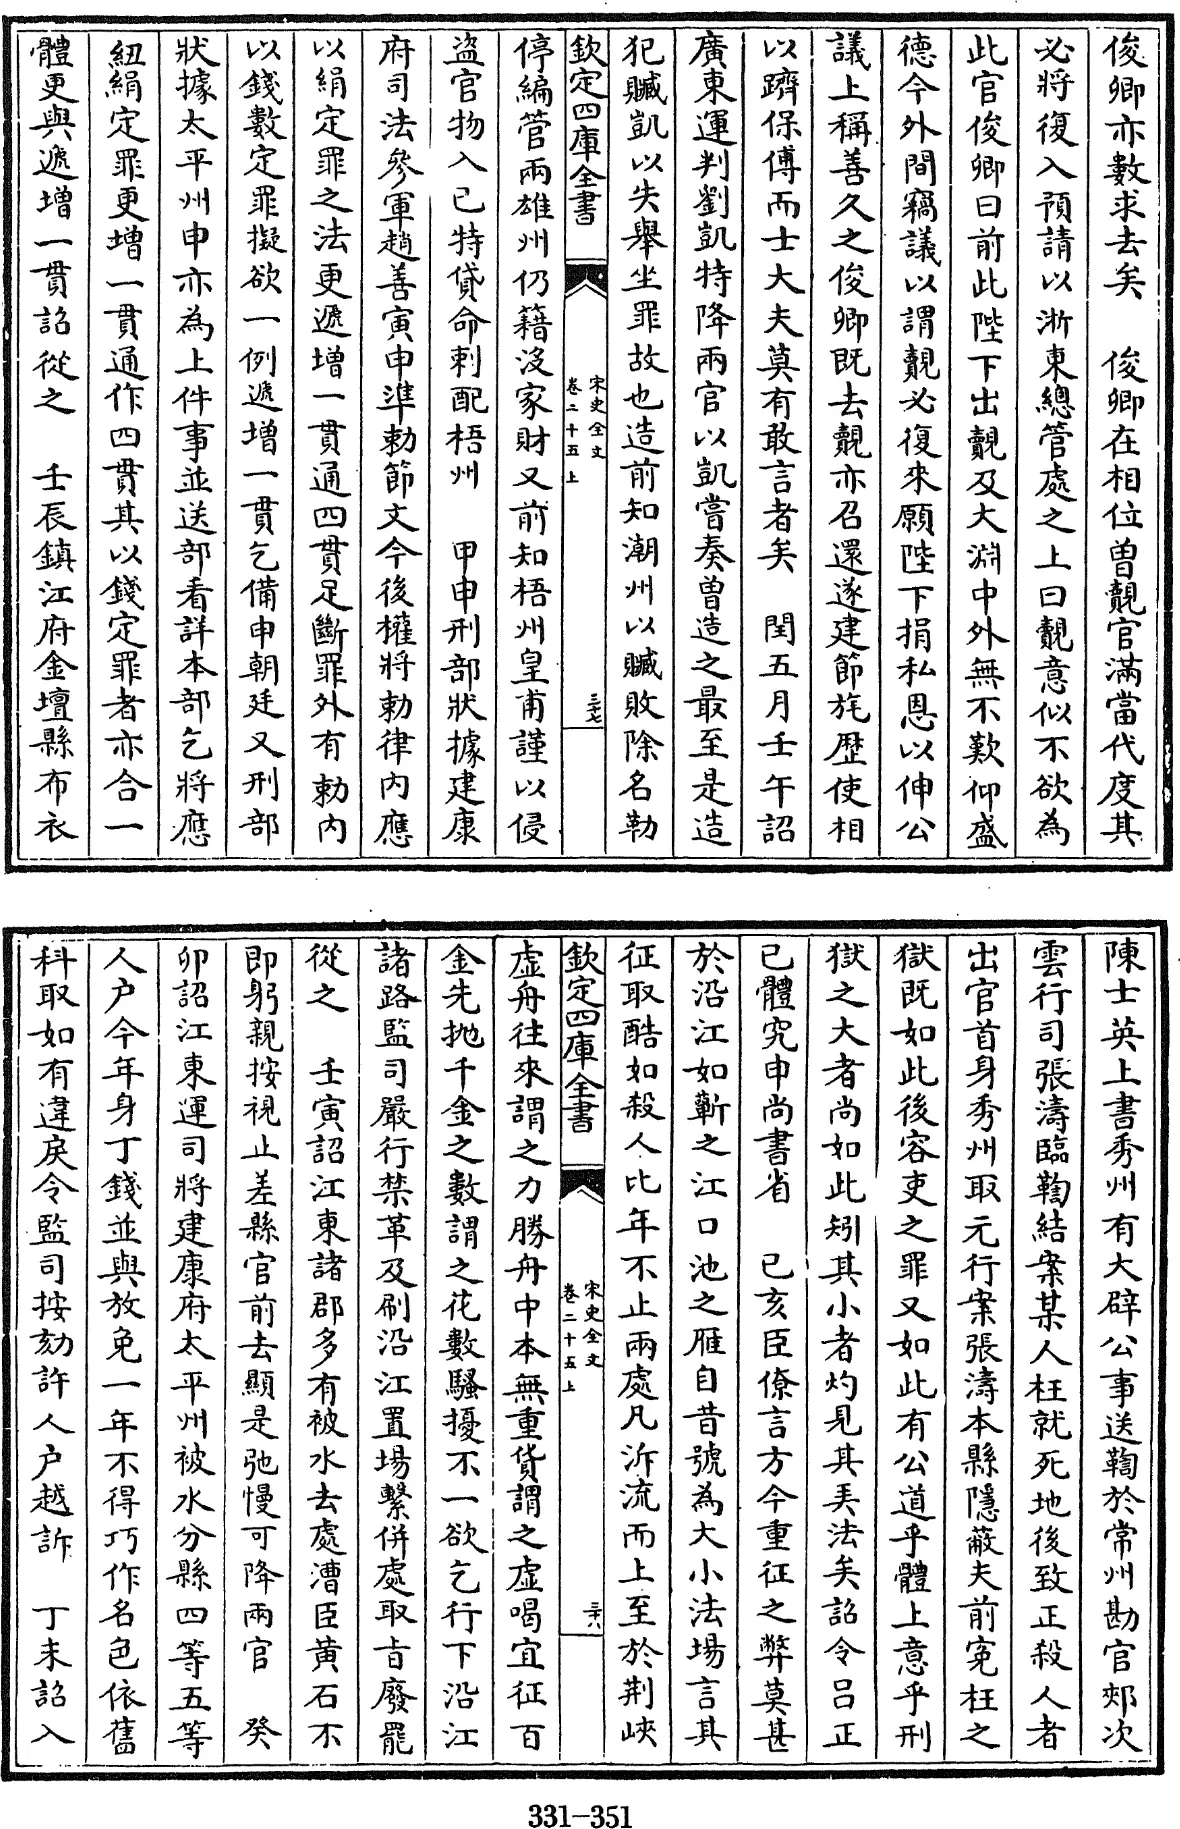 俊卿亦數求去矣　俊卿在相位曽覿官滿當代度其
必將復入預請以浙東總管處之上曰覿意似不欲為
此官俊卿曰前此陛下出覿及大淵中外無不歎仰盛
德今外間竊議以謂覿必復來願陛下捐私恩以伸公
議上稱善久之俊卿既去覿亦召還遂建節旄歴使相
以躋保傅而士大夫莫有敢言者矣　閏五月壬午詔
廣東運判劉凱特降兩官以凱嘗奏曽造之最至是造
犯贓凱以失舉坐罪故也造前知潮州以贓敗除名勒
欽定四庫全書
宋史全文
卷二十五上
三七
停編管南雄州仍籍沒家財又前知梧州皇甫謹以侵
盗官物入已特貸命刺配梧州　甲申刑部狀據建康
府司法參軍趙善寅申準勅節文今後權將勅律内應
以絹定罪之法更遞増一貫通四貫足斷罪外有勅内
以錢數定罪擬欲一例遞増一貫乞備申朝廷又刑部
狀據太平州申亦為上件事並送部看詳本部乞將應
紐絹定罪更増一貫通作四貫其以錢定罪者亦合一
體更與遞増一貫詔從之　壬辰鎮江府金壇縣布衣
陳士英上書秀州有大辟公事送鞫於常州勘官郟次
雲行司張濤臨鞫結案某人枉就死地後致正殺人者
出官首身秀州取元行案張濤本縣隱蔽夫前寃枉之
獄既如此後容吏之罪又如此有公道乎體上意乎刑
獄之大者尚如此矧其小者灼見其弄法矣詔令吕正
已體究申尚書省　已亥臣僚言方今重征之弊莫甚
於沿江如蘄之江口池之雁自昔號為大小法場言其
征取酷如殺人比年不止兩處凡泝流而上至於荆峽
欽定四庫全書
宋史全文
卷二十五上
三八
虚舟往來謂之力勝舟中本無重貨謂之虚喝宜征百
金先抛千金之數謂之花數騷擾不一欲乞行下沿江
諸路監司嚴行禁革及刷沿江置場繫併處取㫖廢罷
從之　壬寅詔江東諸郡多有被水去處漕臣黄石不
即躬親按視止差縣官前去顯是弛慢可降兩官　癸
卯詔江東運司將建康府太平州被水分縣四等五等
人户今年身丁錢並與放免一年不得巧作名色依舊
科取如有違戾令監司按劾許人户越訴　丁未詔入
331-351